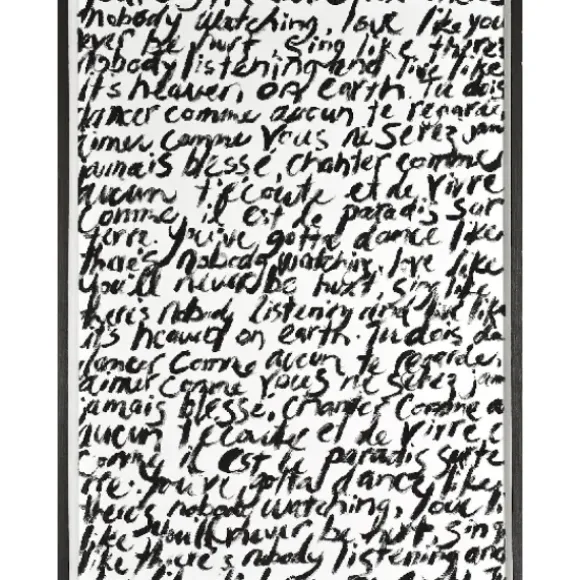 nobody watching, love like you
ever be hurt, sing like there's
nobody listening and live like
it's heaven on earth. tu dois
dancer comme aucun te regarder
aimer comme vous ne serez jam
jamais blessé, chanter comme
aucun t'écoute et de vivre
comme il est le paradis sur
terre. you've gotta dance like
there's nobody watching, love like
you'll never be hurt, sing like
there's nobody listening and live like
it's heaven on earth. Tu dois da
dancer comme aucun te regarder,
aimer comme vous ne serez jam
jamais blessé, chanter comme a
aucun t'écoute et de vivre c
comme il est le paradis sur te
rre. you've gotta dance like
there's nobody watching, love li
like you'll never be hurt, sing
like there's nobody listening and